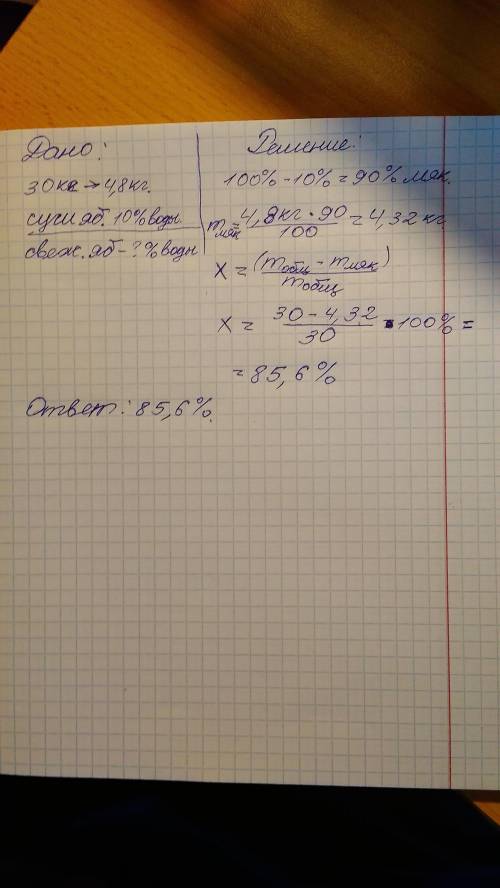 Дано:
30кг → 4,8кг.
суш. яб. 10% воды
свеж. яб - ? % воды
Решение:
100% - 10% = 90% мяк.
m мяк = 4,8кг · 90 / 100 = 4,32 кг
X = (m общ - m мяк) / m общ
X = 30 - 4,32 / 30 · 100% =
= 85,6%
Ответ: 85,6%.